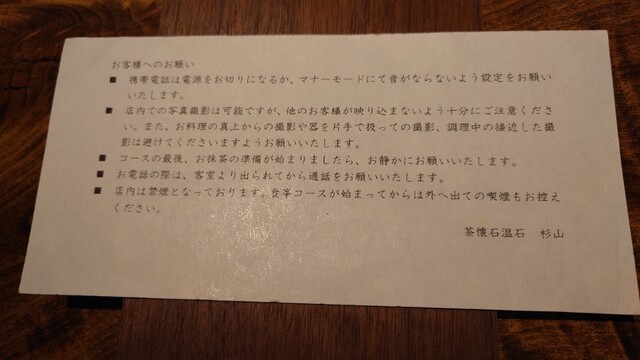 お客様へのお願い
■ 携帯電話は電源をお切りになるか、マナーモードにて音がならないよう設定をお願い
いたします。
■ 店内での写真撮影は可能ですが、他のお客様が映り込まないよう十分にご注意くださ
い。また、お料理の真上からの撮影や器を片手で扱っての撮影、調理中の接近した撮
影は避けてくださいますようお願いいたします。
■ コースの最後、お抹茶の準備が始まりましたら、お静かにお願いいたします。
■ お電話の際は、客室より出られてから通話をお願いいたします。
■ 店内は禁煙となっております。食事コースが始まってからは外へ出ての喫煙もお控え
ください。
茶懐石温石 杉山